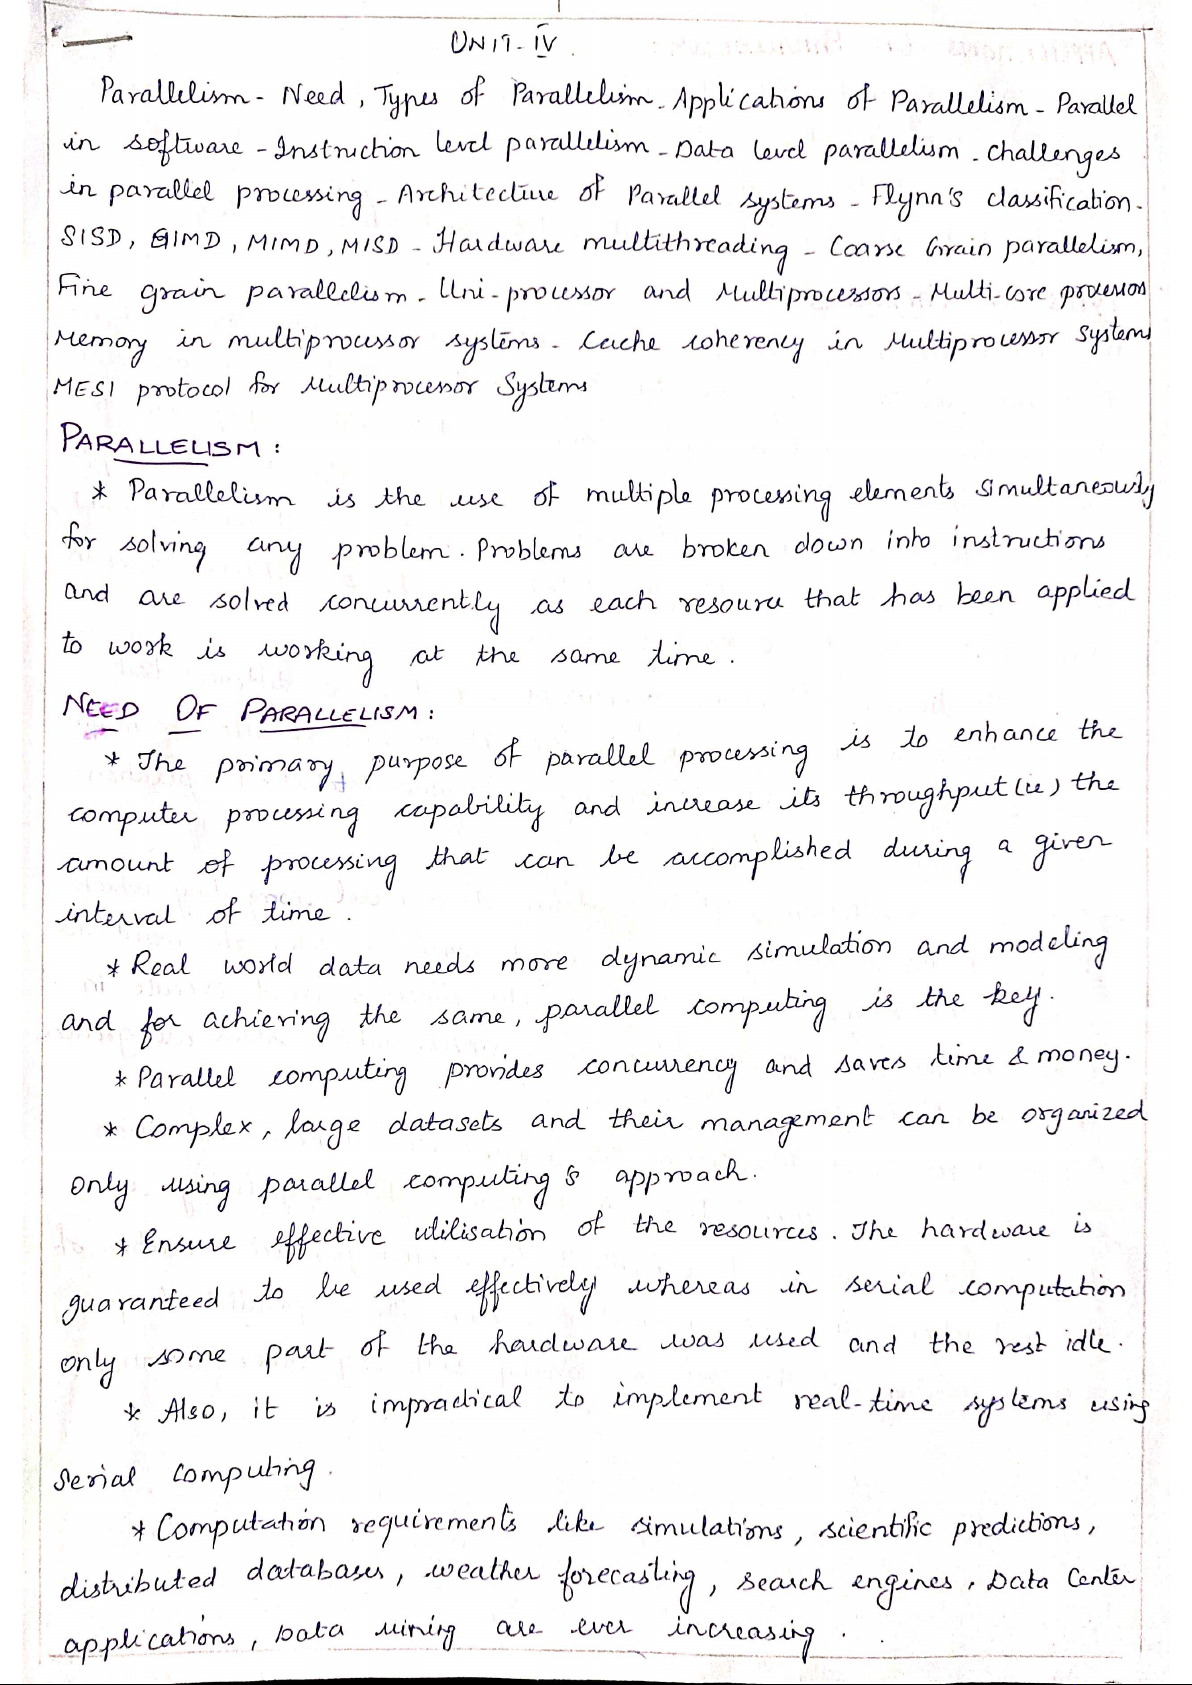 UNIT-IV.
Parallelism - Need, Types of Parallelism - Applications of Parallelism - Parallel
in software - Instruction level parallelism - Data level parallelism - challenges
in parallel processing - Architecture of Parallel systems - Flynn's classification -
SISD, SIMD, MIMD, MISD - Hardware multithreading - Coarse Grain parallelism,
Fine grain parallelism - Uni-processor and Multiprocessors - Multi-core processors
Memory in multiprocessor systems - Cache coherency in Multiprocessor Systems
MESI protocol for Multiprocessor Systems
PARALLELISM:
* Parallelism is the use of multiple processing elements simultaneously
for solving any problem. Problems are broken down into instructions
and are solved concurrently as each resource that has been applied
to work is working at the same time.
NEED OF PARALLELISM:
* The primary purpose of parallel processing is to enhance the
computer processing capability and increase its throughput (ie) the
amount of processing that can be accomplished during a given
interval of time.
* Real world data needs more dynamic simulation and modeling
and for achieving the same, parallel computing is the key.
* Parallel computing provides concurrency and saves time & money.
* Complex, large datasets and their management can be organized
only using parallel computing's approach.
* Ensure effective utilisation of the resources. The hardware is
guaranteed to be used effectively whereas in serial computation
only some part of the hardware was used and the rest idle.
* Also, it is impractical to implement real-time systems using
serial computing.
* Computation requirements like simulations, scientific predictions,
distributed databases, weather forecasting, search engines, Data Center
applications, Data mining are ever increasing.